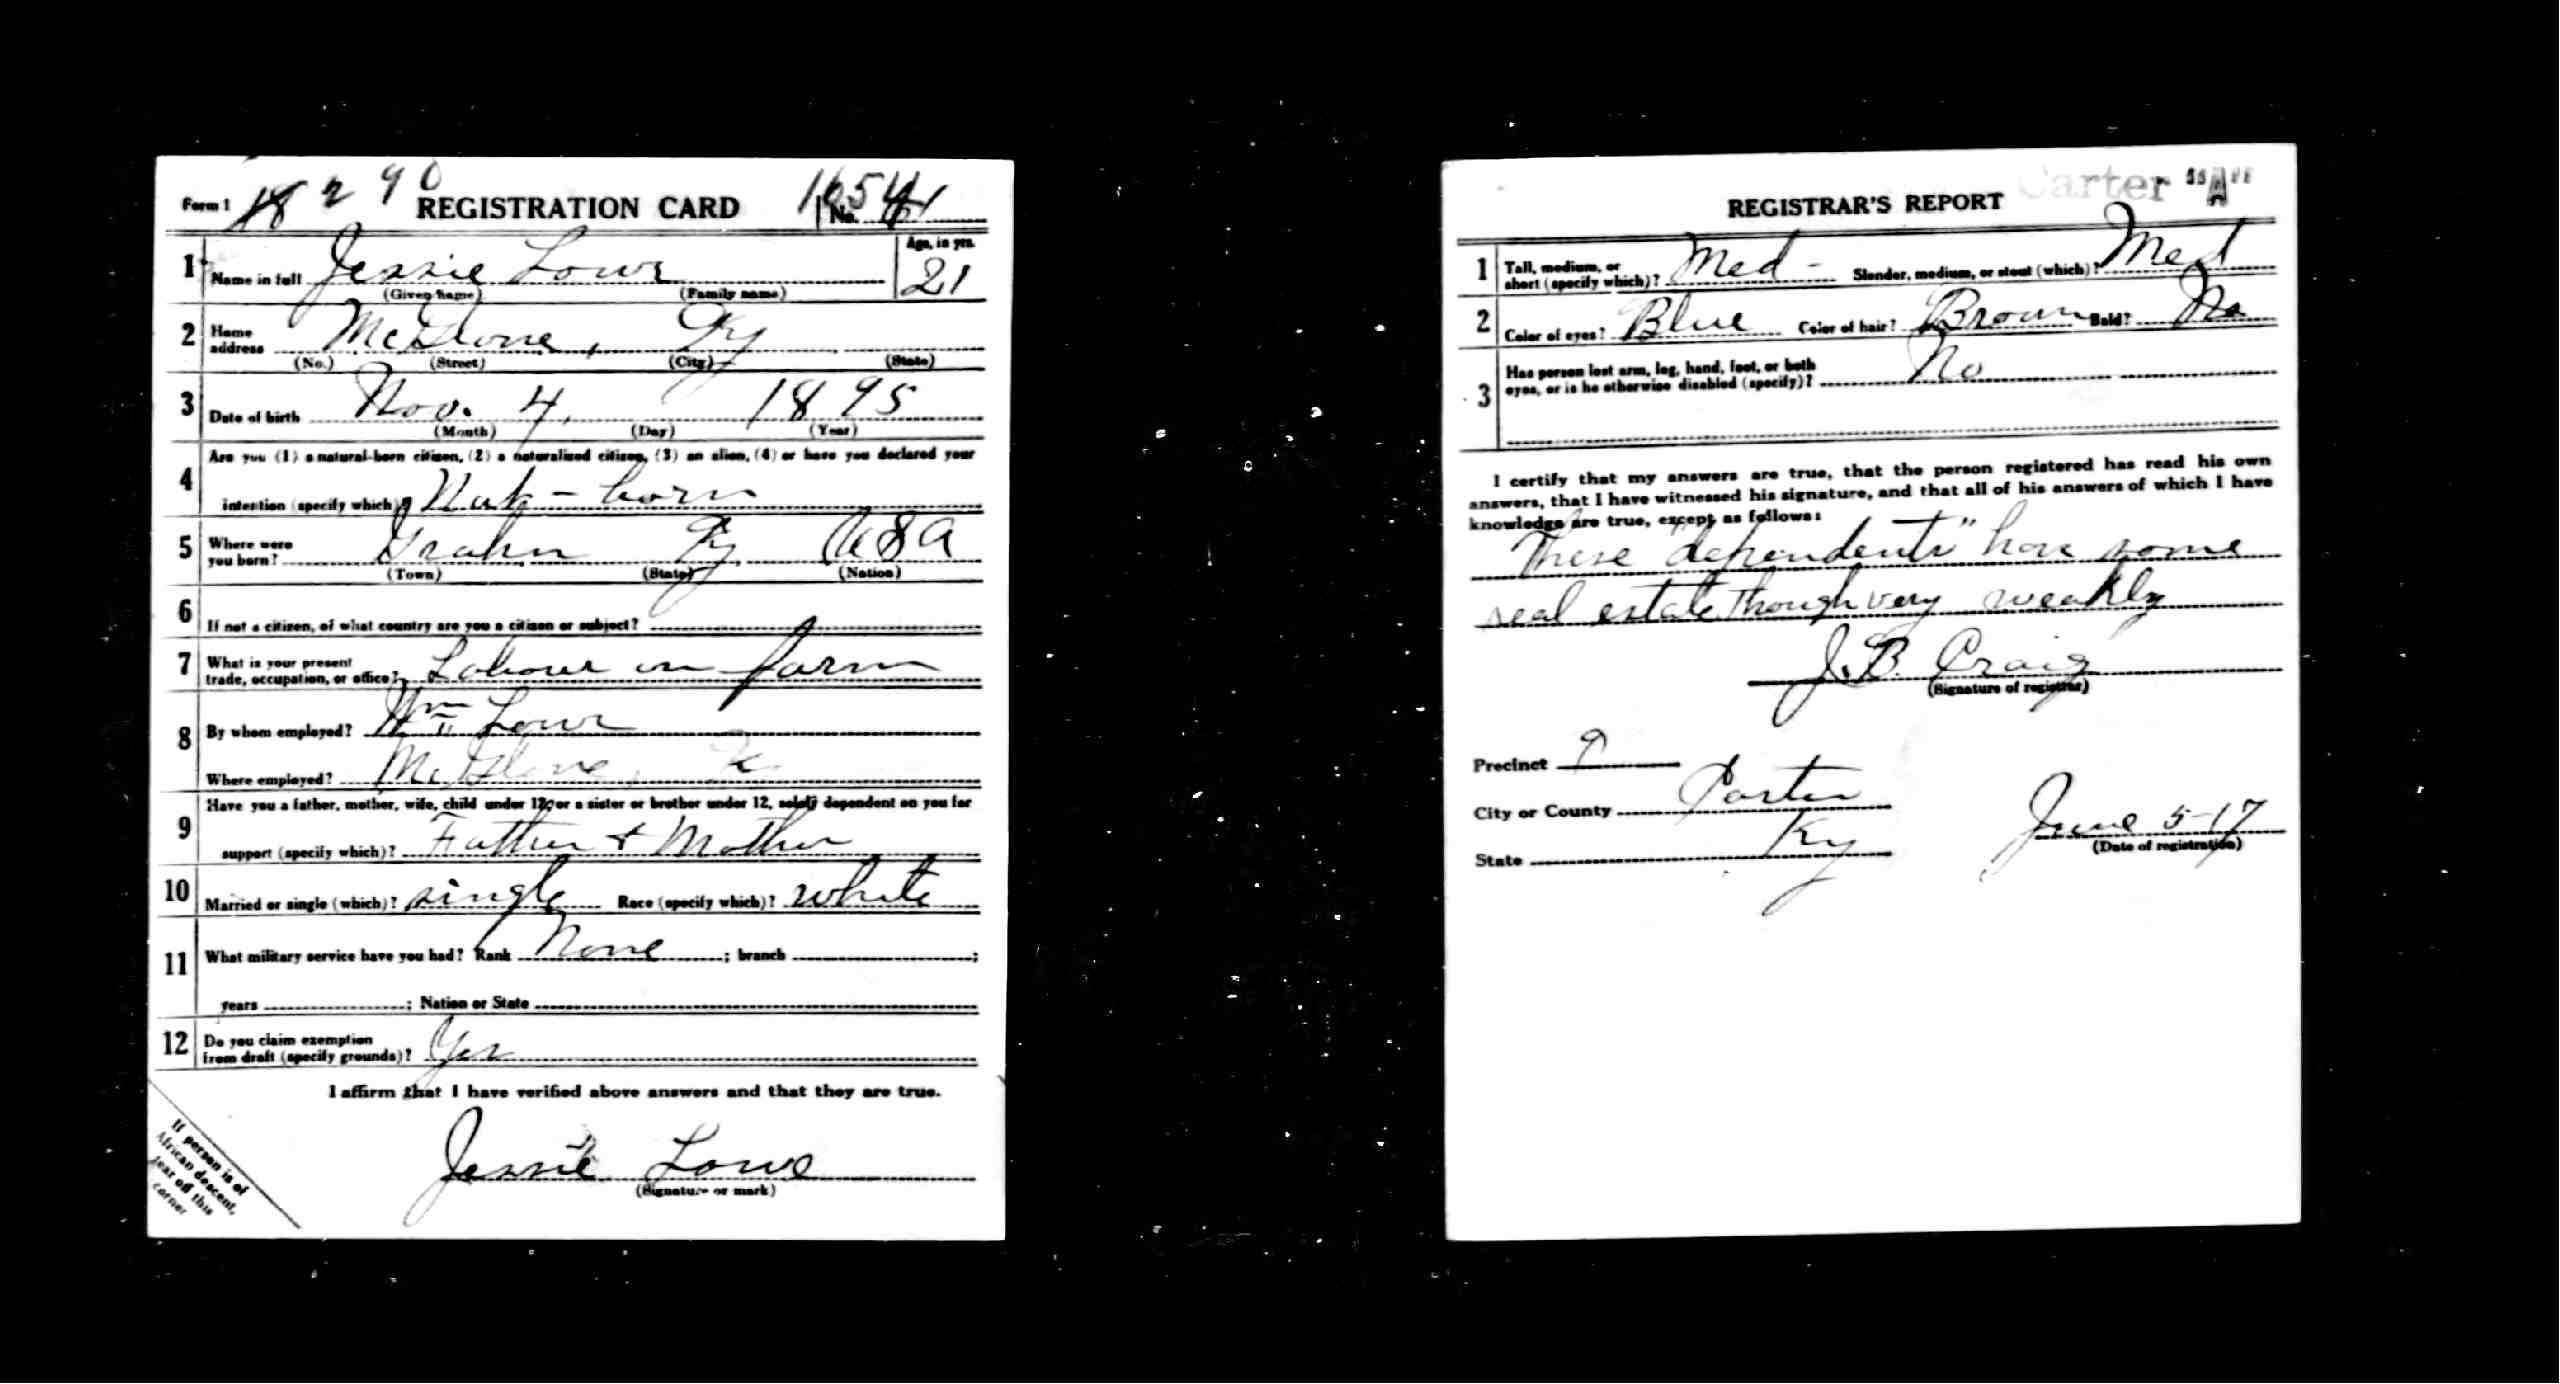 Form 1 REGISTRATION CARD No.
1 Name in full Jessie Lowe Age, in yrs. 21
(Given name) (Family name)
2 Home address McGlone, Ky
(No.) (Street) (City) (State)
3 Date of birth Nov. 4, 1895
(Month) (Day) (Year)
4 Are you (1) a natural-born citizen, (2) a naturalized citizen, (3) an alien, (4) or have you declared your
intention (specify which)? Nat-born
5 Where were you born? Grahn Ky USA
(Town) (State) (Nation)
6 If not a citizen, of what country are you a citizen or subject?
7 What is your present trade, occupation, or office? Labour on farm
8 By whom employed? Wm Lowe
Where employed? McGlone, K
9 Have you a father, mother, wife, child under 12, or a sister or brother under 12, solely dependent on you for
support (specify which)? Father & Mother
10 Married or single (which)? single Race (specify which)? white
11 What military service have you had? Rank None ; branch ;
years ; Nation or State
12 Do you claim exemption from draft (specify grounds)? Yes
I affirm that I have verified above answers and that they are true.
Jessie Lowe
(Signature or mark)
If person is of
African descent,
tear off this
corner
Carter
REGISTRAR'S REPORT
1 Tall, medium, or short (specify which)? Med - Slender, medium, or stout (which)? Med
2 Color of eyes? Blue Color of hair? Brown Bald? No
3 Has person lost arm, leg, hand, foot, or both eyes, or is he otherwise disabled (specify)? No
I certify that my answers are true, that the person registered has read his own
answers, that I have witnessed his signature, and that all of his answers of which I have
knowledge are true, except as follows:
These "dependents" have some
real estate though very weakly
J. B. Craig
(Signature of registrar)
Precinct 9
City or County Carter
State Ky June 5-17
(Date of registration)